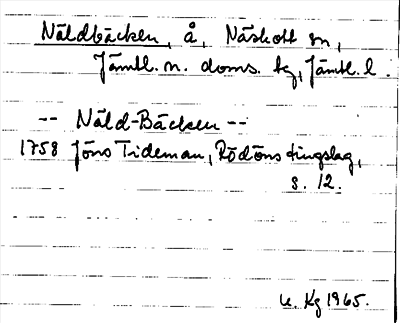 Näldbäcken, å, Näskott sn,
Jämtl. n. doms. tg, Jämtl. l.
-- Näld-Bäcken --
1758 Jöns Tideman, Rödöns tingslag,
s. 12.
U. Kg 1965.